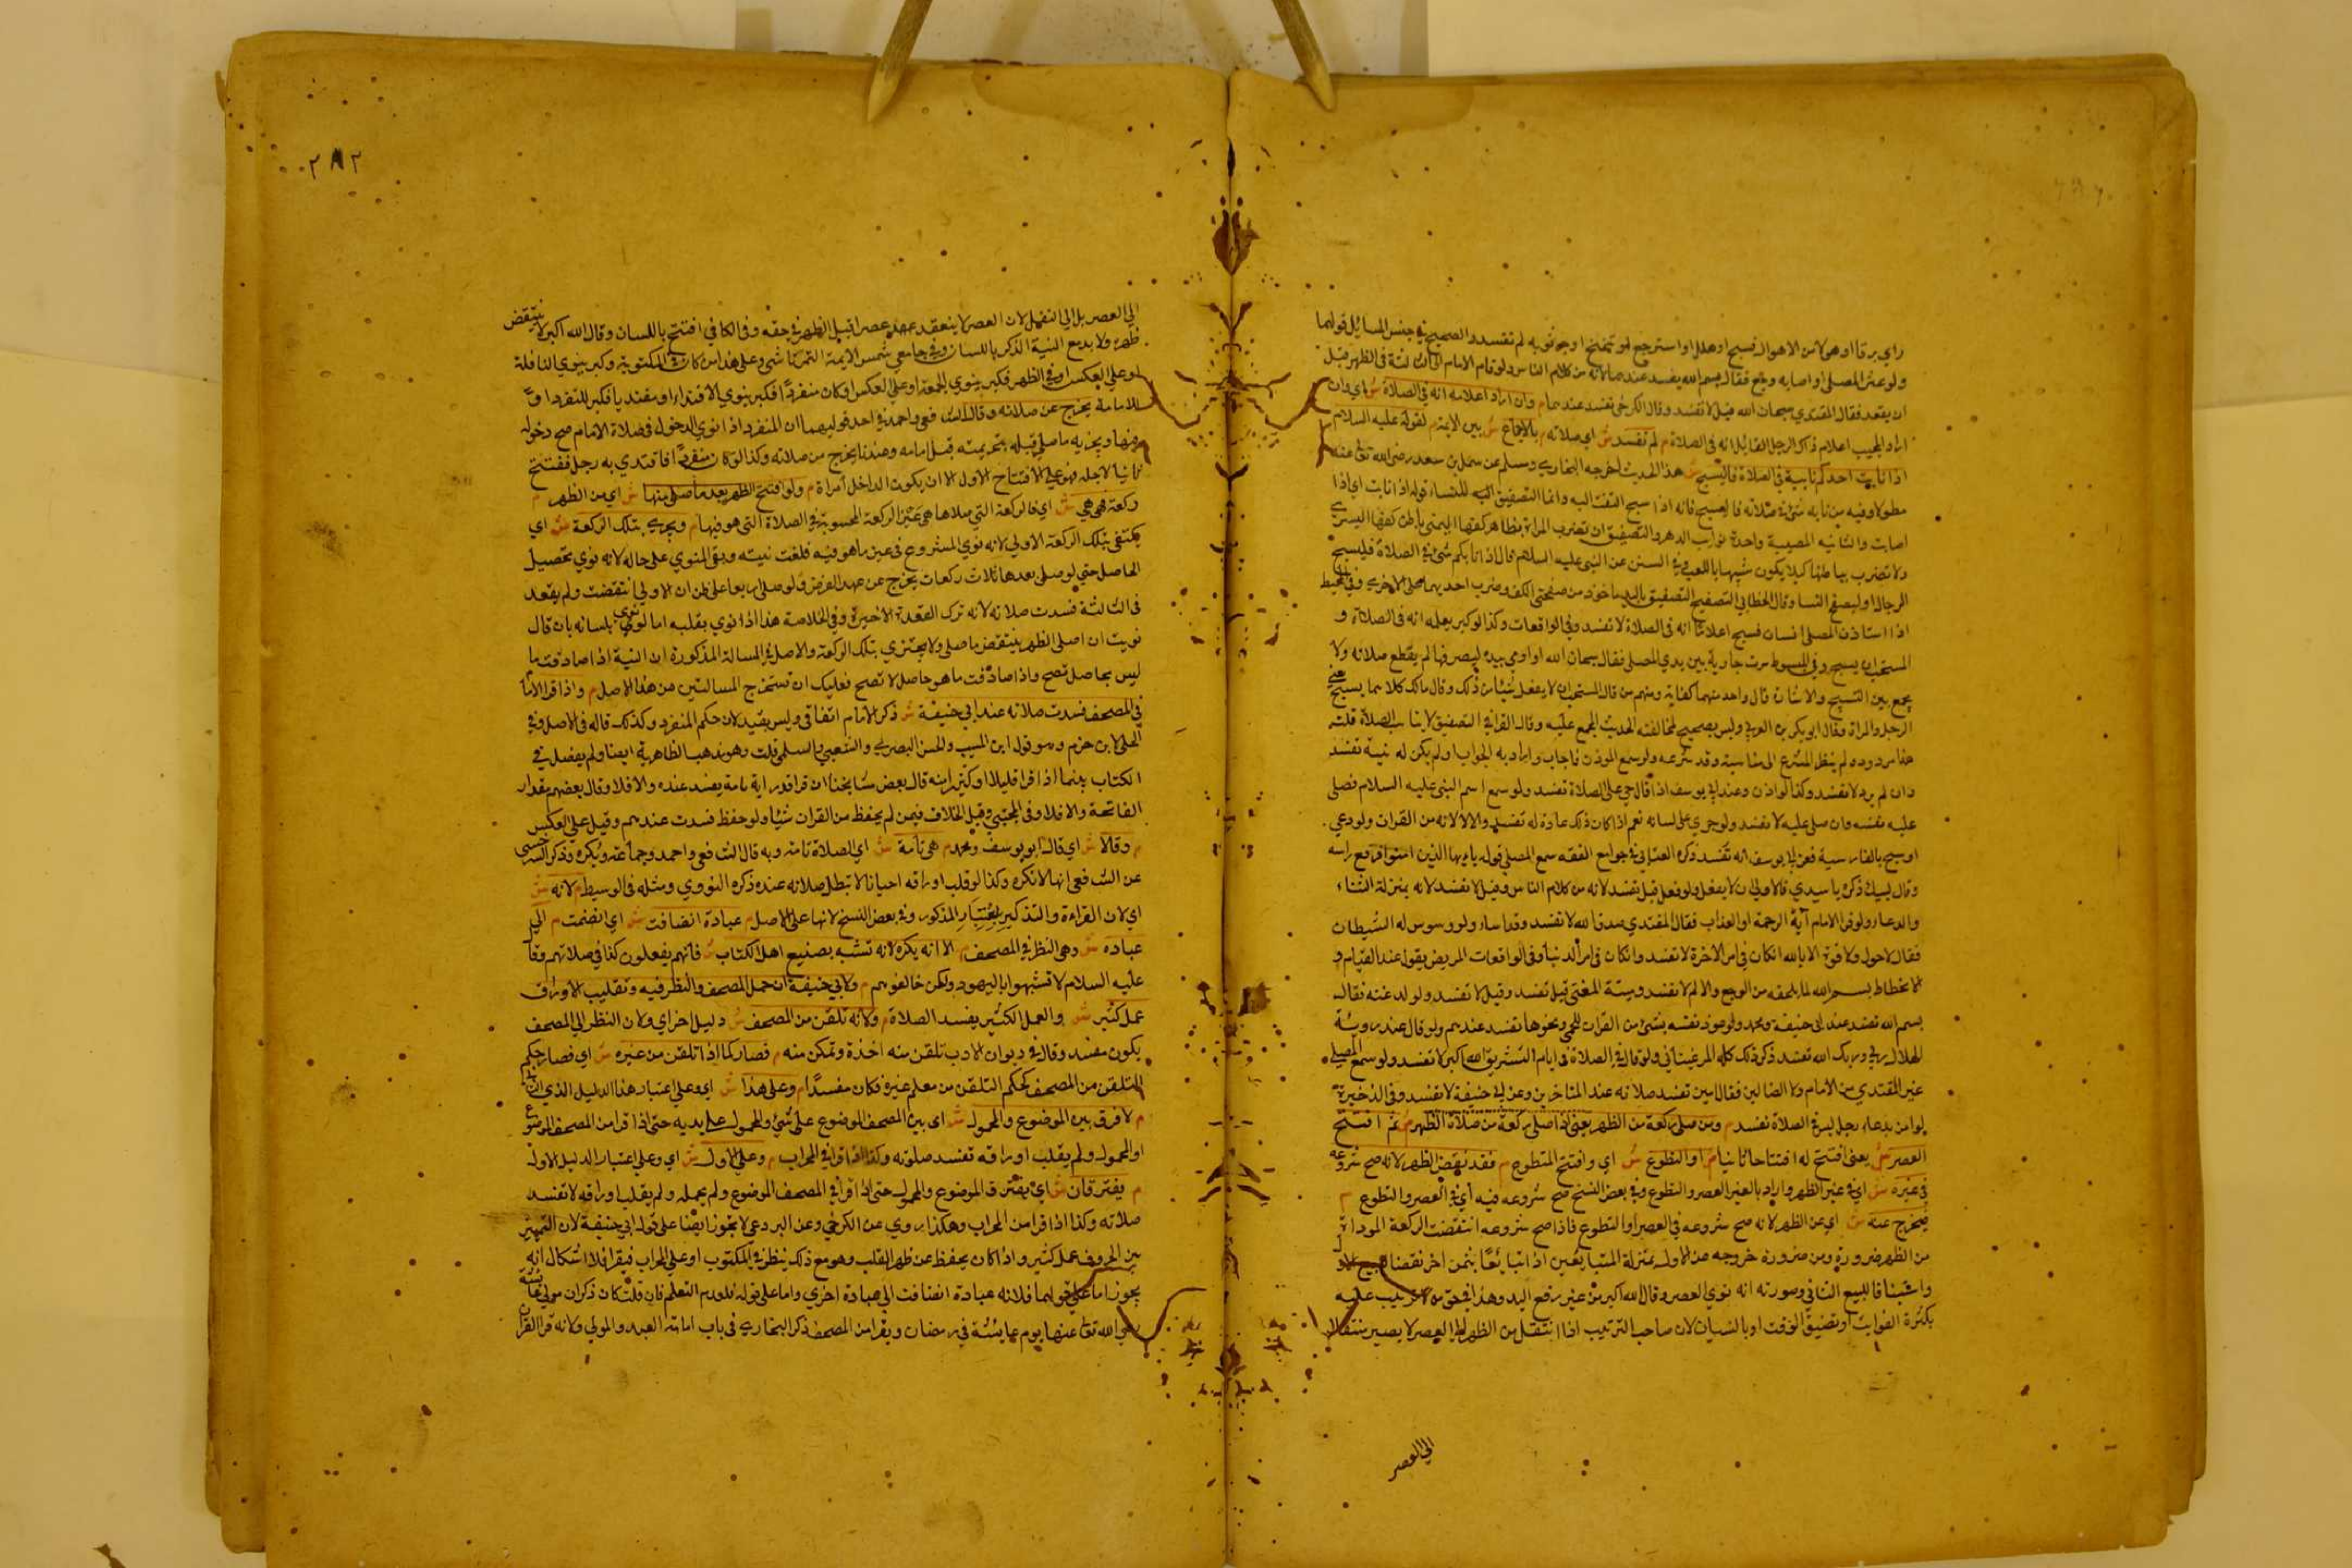 راي برقا او هولا من الاهوال فسبح او هلل او استرجع لو تنحنح او جر ثوبه لم تفسد والصحيح في جنس المسائل قولهما
ولو عثر المصلي او اصابه وجع فقال بسم الله يفسد عندهما لانه من كلام الناس ولو قام الامام الى الثالثة في الظهر قبل
ان يقعد فقال المقتدي سبحان الله قيل لا تفسد وقال الكرخي تفسد عندهما م وان اراد اعلامه انه في الصلاة ش اي وان
اراد المجيب اعلام ذاك الرجل القائل انه في الصلاة م لم تفسد ش اي صلاته م بالاجماع ش بين الايمة م لقوله عليه السلام
اذا نابت احدكم نايبة في الصلاة فاليسبح ش هذا الحديث اخرجه البخاري ومسلم عن سهل بن سعد رضي الله تعا عنه
مطولا وفيه من نابه شئ في صلاته فاليسبح فانه اذا سبح التفت اليه وانما التصفيق للنساء قوله اذا نابت اي اذا
اصابت والنايبة المصيبة واحدة نوايب الدهر والتصفيق ان تضرب المراة بظاهر كفها اليمنى باطن كفها اليسرى
ولا تضرب بباطنها كيلا يكون شبيها باللعب وفي السنن عن النبي عليه السلام قال اذا نابكم شئ في الصلاة فليسبح
الرجال وليصفح النسا وقال الخطابي التصفيح التصفيق باليد ماخوذ من صفحتي الكف وضرب احديهما على الاخرى وفي المحيط
اذا استاذن المصلي انسان فسبح اعلاما انه في الصلاة لا تفسد وفي الواقعات وكذا لو كبر يعلمه انه في الصلاة و
المستحب ان يسبح وفي المبسوط مرت جارية بين يدي المصلي فقال سبحان الله او اومى بيده ليصرفها لم يقطع صلاته ولا
يجمع بين التسبيح والاشارة قال واحد منهما كفاية ومنهم من قال المستحب ان لا يفعل شيئا من ذلك وقال مالك كلاهما يسبح
الرجل والمراة فقال ابو بكر بن العربي وليس بصحيح لمخالفته الحديث المجمع عليه وقال القرافي التصفيق لا يناسب الصلاة قلت
هذا مردود لم ينظر الشرع الى مناسبته وقد شرعه ولو سمع الموذن فاجاب واراد به الجواب او لم يكن له نية تفسد
وان لم يرد لا تفسد وكذا لو اذن وعند ابي يوسف اذا قال حي على الصلاة تفسد ولو سمع اسم النبي عليه السلام فصلى
عليه تفسد وان صلى عليه لا تفسد ولو جرى على لسانه نعم اذا كان ذلك عادة له تفسد والا لا لانه من القران ولو دعي
او سبح بالفارسية فعن ابي يوسف انه تفسد ذكره العتابي في جوامع الفقه سمع المصلي قوله يا ايها الذين امنوا فرفع راسه
وقال لبيك يا سيدي فالاولى ان لا يفعل ولو فعل قيل تفسد لانه من كلام الناس وقيل لا تفسد لانه بمنزلة الثناء
والدعاء ولو قرا الامام آية الرحمة او العذاب فقال المقتدي صدق الله لا تفسد وقد اساء ولو وسوس له الشيطان
فقال لا حول ولا قوة الا بالله ان كان في امر الاخرة لا تفسد وان كان في امر الدنيا وفي الواقعات المريض يقول عند القيام و
الانحطاط بسم الله لما يلحقه من الوجع والالم لا تفسد قيل تفسد وقيل لا تفسد ولو لدغته فقال
بسم الله تفسد عند ابي حنيفة ومحمد ولو عوذ نفسه بشئ من القران للحمى ونحوها تفسد عندهم ولو قال عند روية
الهلال ربي وربك الله تفسد ذكر ذلك كله المرغيناني ولو قال في الصلاة في ايام التشريق الله اكبر لا تفسد ولو سمع المصلي
غير المقتدي من الامام ولا الضالين فقال امين تفسد صلاته عند المتاخرين وعن ابي حنيفة لا تفسد وفي الذخيرة
لو امن بدعاء رجل ليس في الصلاة تفسد م ومن صلى ركعة من الظهر يعني اذا صلى ركعة من صلاة الظهر م ثم افتتح
العصر ش يعني افتتح له افتتاحا ثانيا م او التطوع ش اي وافتتح التطوع م فقد نقض الظهر لانه صح شروعه
في غيره ش اي في غير الظهر واراد بالغير العصر والتطوع وفي بعض النسخ صح شروعه فيه اي في العصر والتطوع م
فيخرج عنه ش اي عن الظهر لانه صح شروعه في العصر او التطوع فاذا صح شروعه انتقضت الركعة المودات
من الظهر ضرورة ومن ضرورة خروجه من الاول بمنزلة المتبايعين اذا تبايعا بثمن اخر نقضنا البيع الاول
واثبتنا البيع الثاني وصورته انه نوى العصر وقال الله اكبر من غير رفع اليد وهذا في حق من لا ترتيب عليه
بكثرة الفوايت او بضيق الوقت او بالنسيان لان صاحب الترتيب اذا انتقل من الظهر الى العصر لا يصير منتقلا
الى العصر
٢٨٢
الى العصر بل الى النفل لان العصر لا ينعقد عصرا قبل الظهر في حقه وفي الكافي افتتح باللسان وقال الله اكبر لا ينتقض
ظهره ولا يدع النية الذكر باللسان وفي جامعي شمس الايمة التمرتاشي وعلى هذا من كان في المكتوبة وكبر ينوي النافلة
او على العكس او في الظهر فكبر ينوي الجمعة او على العكس او كان منفردا فكبر ينوي الاقتداء او مقتديا فكبر للتفرد او
للامامة يخرج عن صلاته وقال الشافعي واحمد في احد قوليهما ان المنفرد اذا نوى الدخول في صلاة الامام صح دخوله
فيها ويجزيه ما صلى قبله بتحريمته قبل امامه وعندنا يخرج من صلاته وكذا لو كان منفردا فاقتدى به رجل ففتح
ثانيا لاجله فهو على الافتتاح الاول الا ان يكون الداخل امراة م ولو افتتح الظهر بعد ما صلى منها ش اي من الظهر م
ركعة فهي هي ش اي فالركعة التي صلاها هي عين الركعة المحسوبة في الصلاة التي هو فيها م ويجزي بتلك الركعة ش اي
يكتفى بتلك الركعة الاولى لانه نوى المشروع في عين ما هو فيه فلغت نيته وبقي المنوي على حاله لانه نوى تحصيل
الحاصل حتى لو صلى بعدها ثلاث ركعات يخرج عن عهد الفرض ولو صلى اربعا على ظن ان الاولى انتقضت ولم يقعد
في الثالثة فسدت صلاته لانه ترك القعدة الاخيرة وفي الخلاصة هذا اذا نوى بقلبه اما لو نوى بلسانه بان قال
نويت ان اصلي الظهر ينتقض ما صلى ولا يجتزي بتلك الركعة والاصل في المسالة المذكورة ان النية اذا صادفت ما
ليس بحاصل تصح واذا صادفت ما هو حاصل لا تصح فعليك ان تستخرج المسالتين من هذا الاصل م واذا قرا الامام
في المصحف فسدت صلاته عند ابي حنيفة ش ذكر الامام اتفاقي وليس بقيد لان حكم المنفرد كذلك قاله في الاصل وفي
المحلى لابن حزم وهو قول ابن المسيب والحسن البصري والشعبي والسلمي قلت وهو مذهب الظاهرية ايضا ولم يفصل في
الكتاب بينما اذا قرا قليلا او كثيرا منه قال بعض مشايخنا ان قرا قدر اية تامة يفسد عنده والا فلا وقال بعضهم مقدار
الفاتحة والا فلا وفي المجتبى وقيل الخلاف فيمن لم يحفظ من القران شيئا ولو حفظ فسدت عندهم وقيل على العكس
م وقالا ش اي قال ابو يوسف ومحمد م هي تامة ش اي الصلاة تامة وبه قال الشافعي واحمد وجماعة ويكره وذكر السرخسي
عن الشافعي انها لا تكره وكذا لو قلب اوراقه احيانا لا تبطل صلاته عنده ذكره النووي ومثله في الوسيط م لانه ش
اي لان القراءة والتذكير باعتبار المذكور وفي بعض النسخ لانها على الاصل م عبادة انضافت ش اي انضمت م الى
عبادة ش وهي النظر في المصحف م الا انه يكره لانه تشبه بصنيع اهل الكتاب ش فانهم يفعلون كذا في صلاتهم وقال
عليه السلام لا تشبهوا باليهود ولكن خالفوهم م ولابي حنيفة ان حمل المصحف والنظر فيه وتقليب الاوراق
عمل كثير ش والعمل الكثير يفسد الصلاة م ولانه تلقن من المصحف ش دليل اخر اي ولان النظر الى المصحف
يكون مفسد وقال في ديوان الادب تلقن منه اخذه وتمكن منه م فصار كما اذا تلقن من غيره ش اي فصار حكم
التلقن من المصحف كحكم التلقن من معلم غيره فكان مفسدا م وعلى هذا ش اي وعلى اعتبار هذا الدليل الذي
م لا فرق بين الموضوع والمحمول ش اي بين المصحف الموضوع على شئ والمحمول على يديه حتى اذا قرا من المصحف الموضوع
او المحمول ولم يقلب اوراقه تفسد صلوته وكذا اذا قرا في المحراب م وعلى الاول ش اي وعلى اعتبار الدليل الاول
م يفترقان ش اي يفترق الموضوع والمحمول حتى اذا قرا في المصحف الموضوع ولم يحمله ولم يقلب اوراقه لا تفسد
صلاته وكذا اذا قرا من المحراب وهكذا روي عن الكرخي وعن البردعي لا يجوز ايضا على قول ابي حنيفة لان التمييز
بين الحروف عمل كثير واذا كان يحفظ عن ظهر القلب وهو مع ذلك ينظر في المكتوب او على المحراب فيقرا فلا اشكال انه
يجوز اما على قولهما فلانه عبادة انضافت الى عبادة اخرى واما على قوله فلعدم التعلم فان قلت كان ذكوان مولى عائشة
رضي الله تعا عنها يوم عايشة في رمضان ويقرا من المصحف ذكره البخاري في باب امامة العبد والمولى ولانه قرا القران